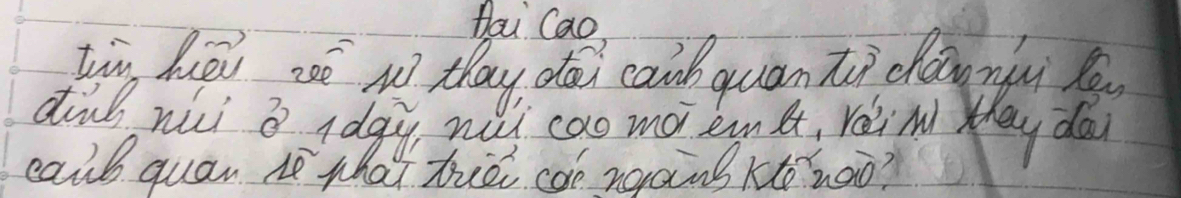 Đai Cao
tìm hiểu về sự thay đổi cảnh quan từ chân núi lên
đỉnh núi ở 1 dãy núi cao mà em b, với sự thay đổi
cảnh quan sẽ phát triển các ngành ktế nào?